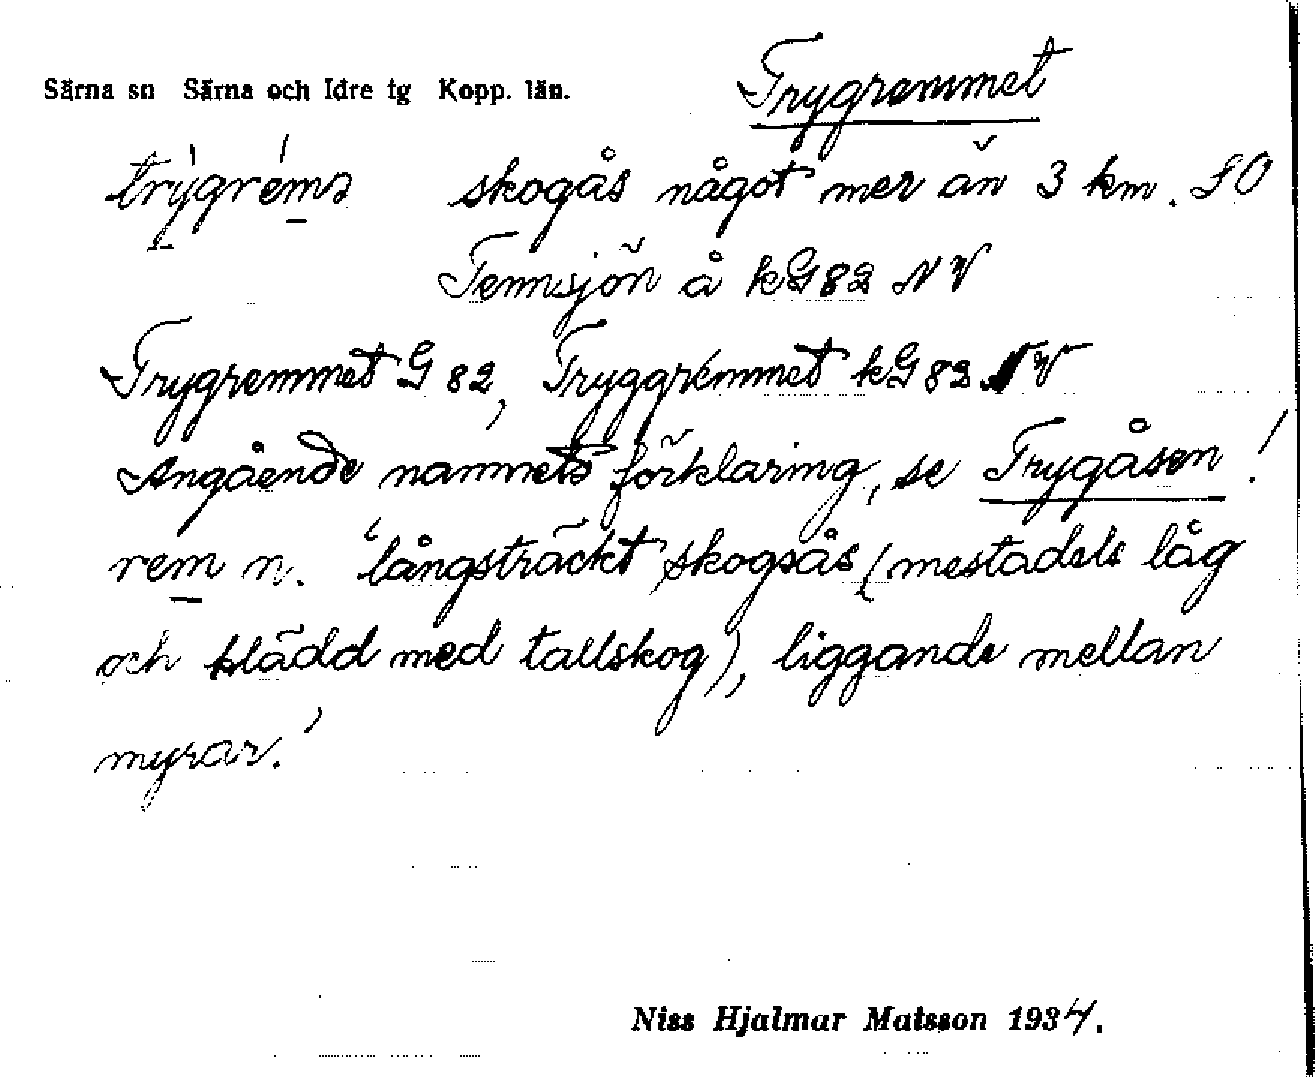 Särna sn Särna och Idre tg Kopp. län.
Trygremmet
skogås något mer än 3 km. SO
Tennsjön å kG82 NV
Trygremmet G 82, Tryggremmet kG82 NV
Angående namnets förklaring, se Trygåsen!
rem n. 'långsträckt skogsås (mestadels låg
och klädd med tallskog), liggande mellan
myrar.'
Niss Hjalmar Matsson 1934.